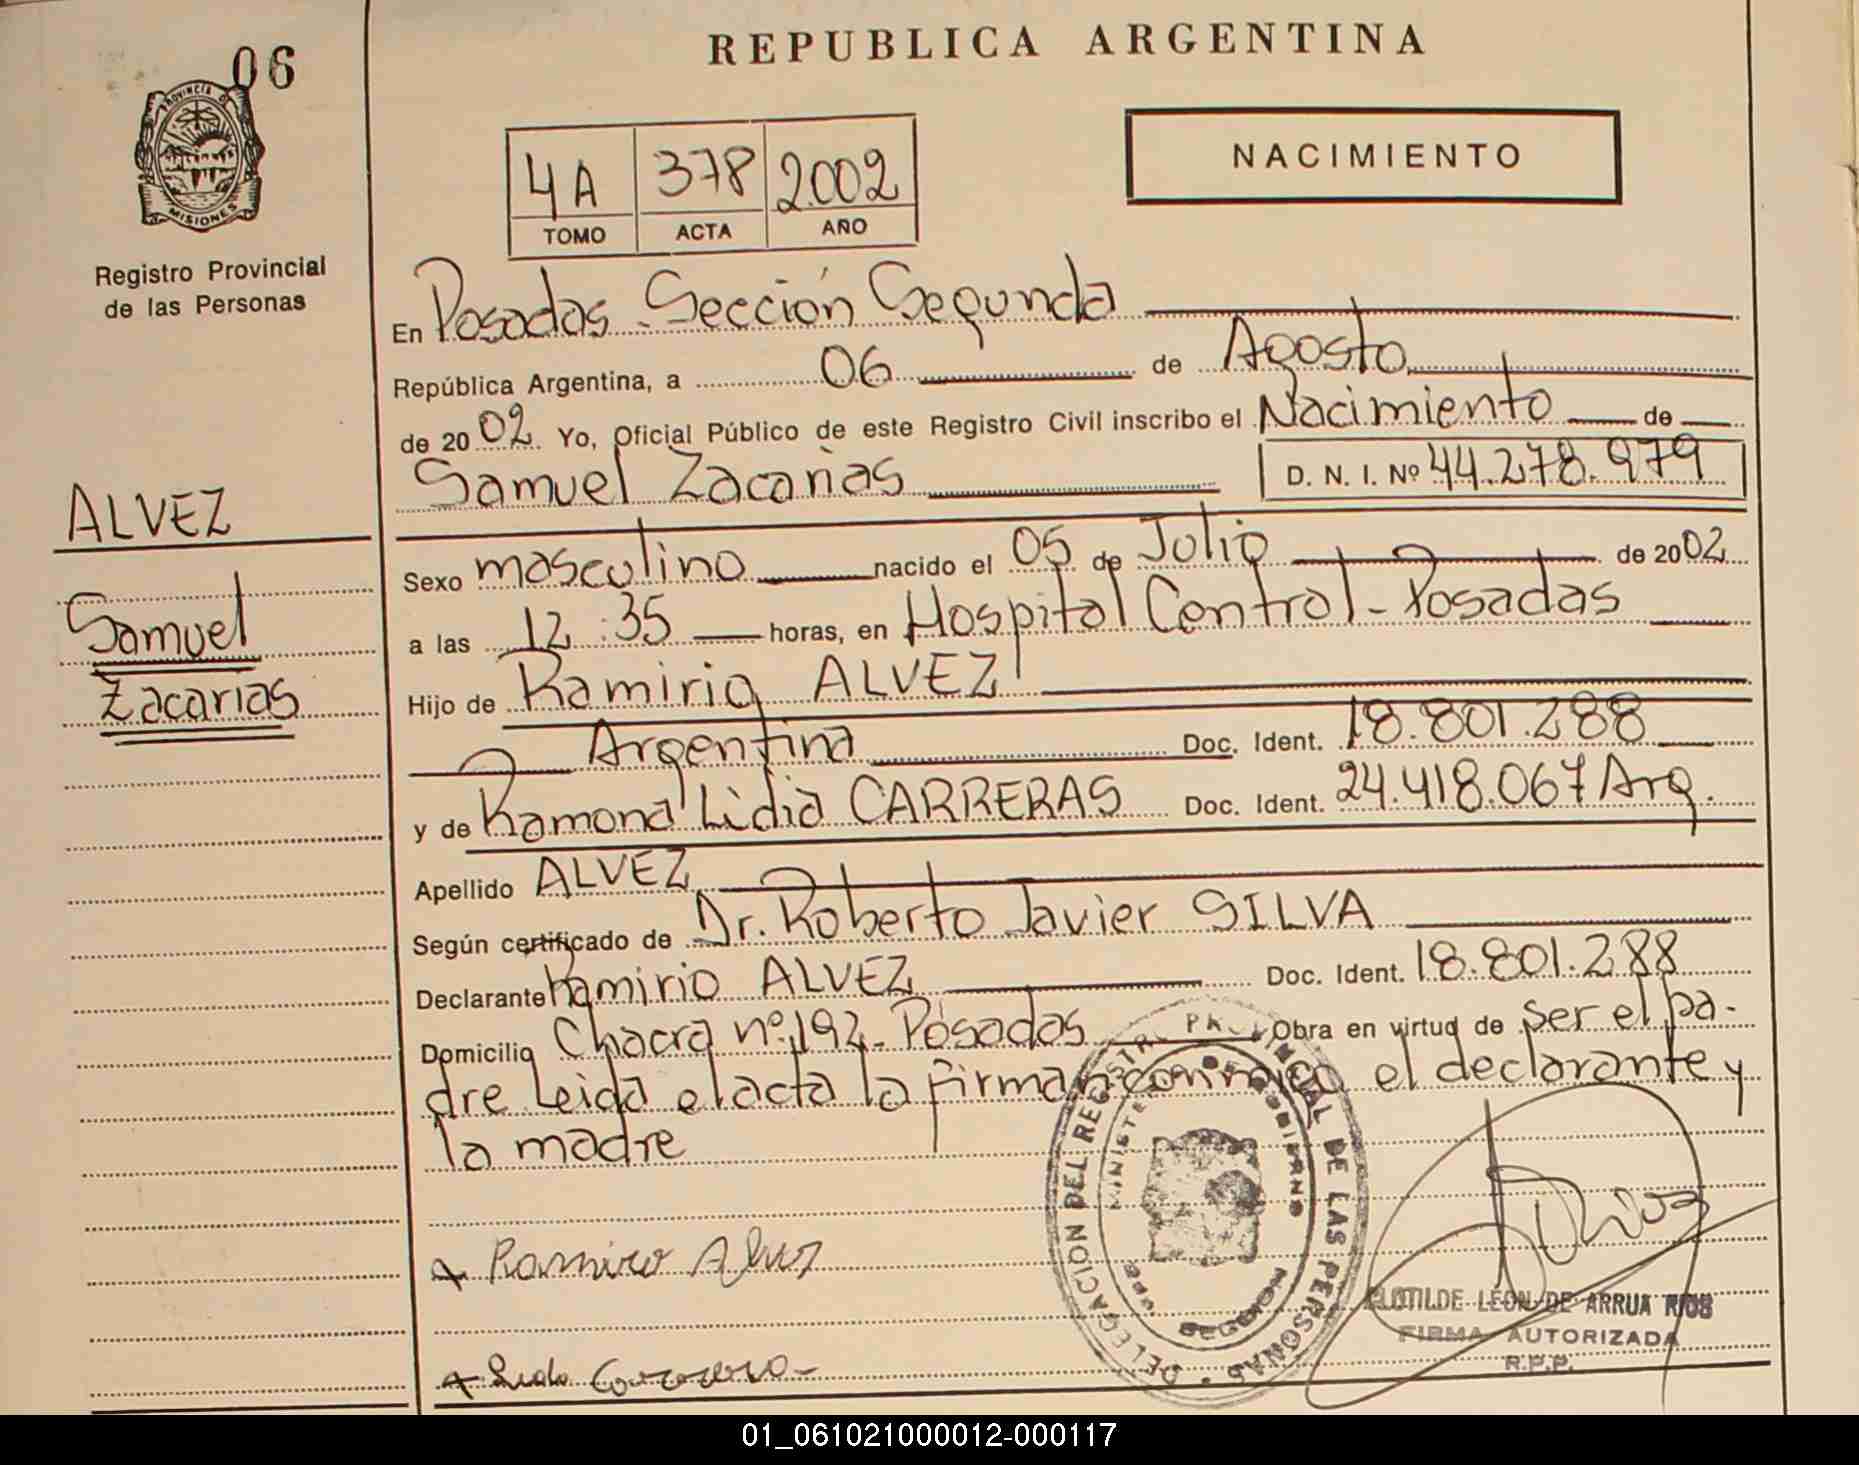 06
PROVINCIA DE
MISIONES
Registro Provincial
de las Personas
ALVEZ
Samuel
Zacarías
REPUBLICA ARGENTINA
NACIMIENTO
4A 378 2002
TOMO ACTA AÑO
En Posadas Sección Segunda
República Argentina, a 06 de Agosto
de 2002 Yo, Oficial Público de este Registro Civil inscribo el Nacimiento de
Samuel Zacarías D. N. I. Nº 44.278.979
Sexo masculino nacido el 05 de Julio de 2002
a las 12:35 horas, en Hospital Central - Posadas
Hijo de Ramirio ALVEZ
Argentina Doc. Ident. 18.801.288
y de Ramona Lidia CARRERAS Doc. Ident. 24.418.067 Arg.
Apellido ALVEZ
Según certificado de Dr. Roberto Javier SILVA
Declarante Ramirio ALVEZ Doc. Ident. 18.801.288
Domicilio Chacra nº 192 - Posadas Obra en virtud de ser el pa-
dre Leida el acta la firman conmigo el declarante y
la madre
DELEGACION DEL REGISTRO PROVINCIAL DE LAS PERSONAS
MINISTERIO DE GOBIERNO
SEGUNDA
Ramiro Alvez
CLOTILDE LEON DE ARRUA RIOS
FIRMA AUTORIZADA
R.P.P.
01_061021000012-000117